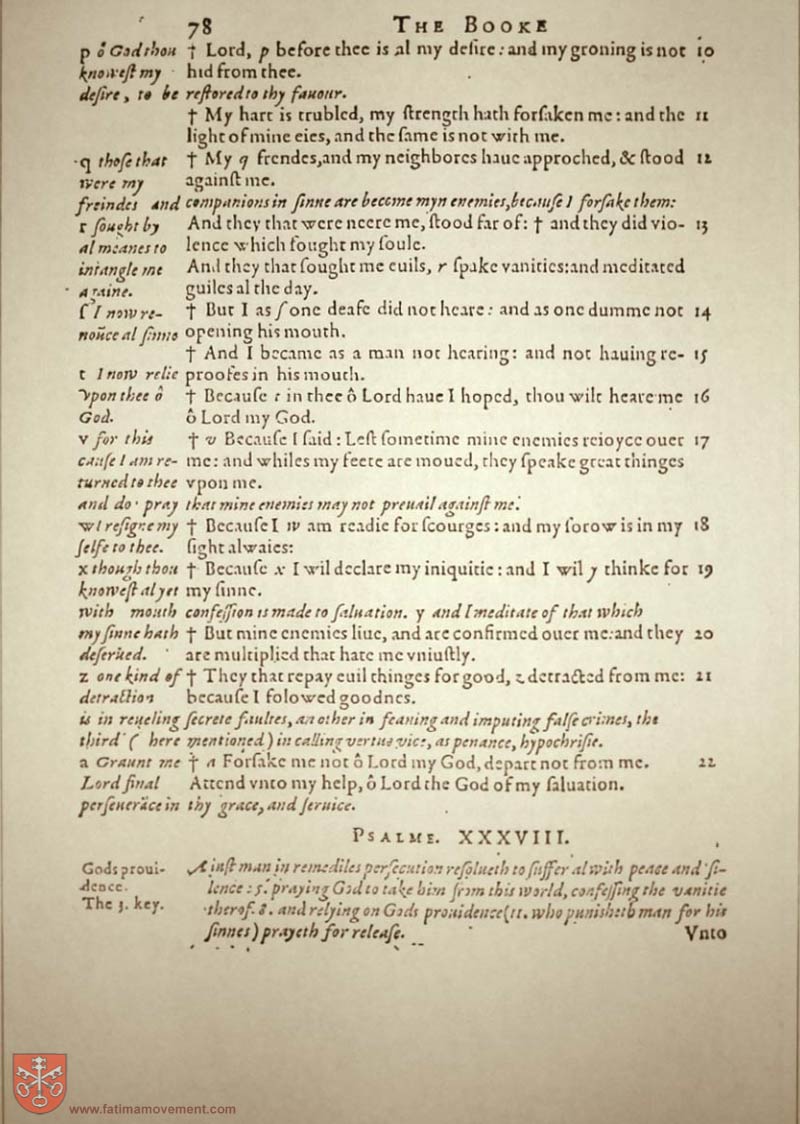 78 THE BOOKE
p ô God thou † Lord, p before thee is al my desire: and my groning is not 10
knowest my hid from thee.
desire, to be restored to thy fauour.
† My hart is trubled, my ſtrength hath forſaken me: and the 11
light of mine eies, and the ſame is not with me.
q thoſe that † My q frendes, and my neighbores haue approched, & ſtood 12
were my againſt me.
freindes and companions in ſinne are become myn enemies, becauſe I forſake them:
r ſought by And they that were neere me, ſtood far of: † and they did vio- 13
al meanes to lence which ſought my ſoule.
intangle me And they that ſought me euils, r ſpake vanities: and meditated
againe. guiles al the day.
ſ I now re- † But I as ſ one deafe did not heare: and as one dumme not 14
noũce al ſinne opening his mouth.
† And I became as a man not hearing: and not hauing re- 15
t I now relie proofes in his mouth.
vpon thee ô † Becauſe t in thee ô Lord haue I hoped, thou wilt heare me 16
God. ô Lord my God.
v for this † v Becauſe I ſaid: Leſt ſometime mine enemies reioyce ouer 17
cauſe I am re- me: and whiles my feete are moued, they ſpeake great thinges
turned to thee vpon me.
and do pray that mine enemies may not preuail againſt me.
w I reſigne my † Becauſe I w am readie for ſcourges: and my ſorow is in my 18
ſelfe to thee. ſight alwaies:
x though thou † Becauſe x I wil declare my iniquitie: and I wil y thinke for 19
knoweſt al yet my ſinne.
with mouth confeſſion is made to ſaluation. y and I meditate of that which
my ſinne hath † But mine enemies liue, and are confirmed ouer me: and they 20
deſerued. are multiplied that hate me vniuſtly.
z one kind of † They that repay euil thinges for good, z detracted from me: 21
detraction becauſe I folowed goodnes.
is in reueling ſecrete faultes, an other in feaning and imputing falſe crimes, the
third (here mentioned) in calling vertue vice, as penance, hypochriſie.
a Graunt me † a Forſake me not ô Lord my God, depart not from me. 22
Lord final Attend vnto my help, ô Lord the God of my ſaluation.
perſeuerãce in thy grace, and ſeruice.
PSALME. XXXVIII.
Gods proui- A iuſt man in remediles perſecution reſolueth to ſuffer al with peace and ſi-
dence. lence: 5. praying God to take him from this world, confeſſing the vanitie
The 3. key. therof. 8. and relying on Gods prouidence (11. who puniſheth man for his
ſinnes) prayeth for releaſe. Vnto
www.fatimamovement.com